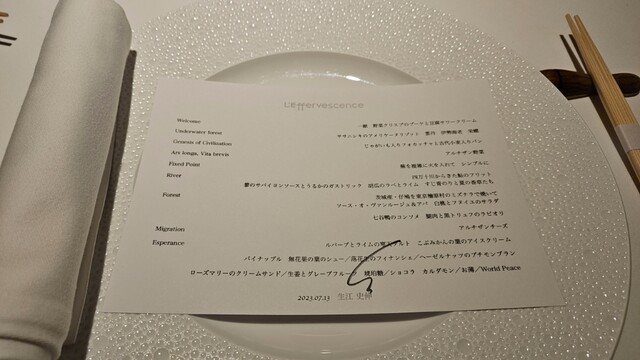 L'Effervescence
Welcome 一献 野菜クリスプのブーケと豆腐サワークリーム
Underwater forest ササニシキのアメリケーヌリゾット 雲丹 伊勢海老
Genesis of Civilization じゃがいも入りフォカッチャと古代小麦入りパン
Ars longa, Vita brevis アルチザン野菜
Fixed Point 蕪を複雑に火を入れて シンプルに
River 四万十川からきた鮎のフリット
鬱のサバイヨンソースとうるかのガストリック 胡瓜のラペとライム すじ青のりと夏の香草たち
Forest 茨城産・仔鳩を東京檜原村のミズナラで焼いて
ソース・オ・ヴァンルージュ&アバ 白桃とフヌイユのサラダ
七谷鴨のコンソメ 腿肉と黒トリュフのラビオリ
Migration アルチザンチーズ
Esperance ルバーブとライムの タルト こぶみかんの葉のアイスクリーム
パイナップル 無花果の葉のシュー/落花生のフィナンシェ/ヘーゼルナッツのプチモンブラン
ローズマリーのクリームサンド/生姜とグレープフルーツ 琥珀糖/ショコラ カルダモン/お薄/World Peace
2023.07.13 生江 史伸